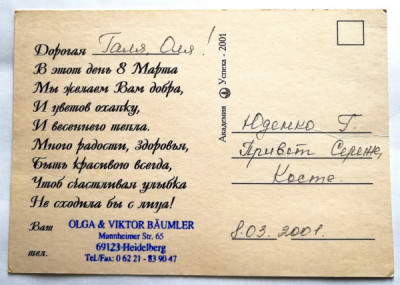 Дорогая Галя, Оля!
В этот день 8 Марта
Мы желаем Вам добра,
И цветов охапку,
И весеннего тепла.
Много радости, здоровья,
Быть красивою всегда,
Чтоб счастливая улыбка
Не сходила бы с лица!
Ваш
тел.
OLGA & VIKTOR BÄUMLER
Mannheimer Str. 65
69123-Heidelberg
Tel./Fax: 0 62 21 - 83 90 47
Академия Успеха - 2001
Юденко Г.
Привет Сереже,
Косте.
8.03.2001.